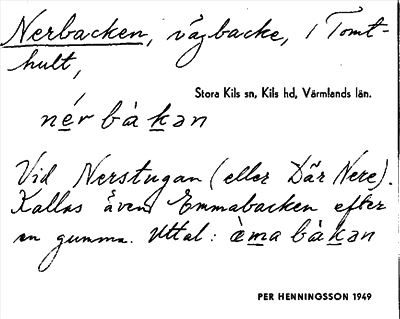 Nerbacken, vägbacke, i Tomt-
hult,
Stora Kils sn, Kils hd, Värmlands län.
nérbàkən
Vid Nerstugan (eller Där Nere).
Kallas även Emmabacken efter
en gumma. Uttal: èmabàkən
PER HENNINGSSON 1949